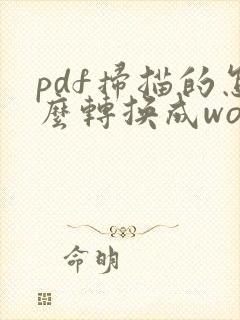 pdf掃描的怎
麼轉換成wo
命明